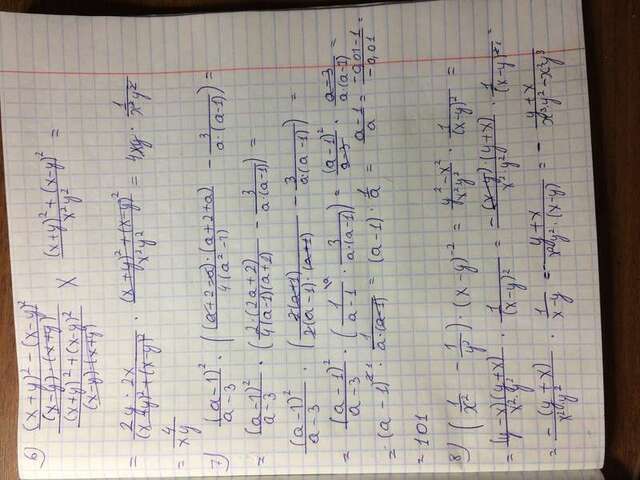 6) (((x+y)² - (x-y)²)/((x-y)·(x+y)))/(((x+y)² + (x-y)²)/((x-y)·(x+y))) × ((x+y)² + (x-y)²)/(x²y²) =
= (2y · 2x)/((x+y)² + (x-y)²) · ((x+y)² + (x-y)²)/(x²y²) = 4xy · 1/(x²y²)
= 4/(xy)
7) (a-1)²/(a-3) · ((a+2-a)·(a+2+a)/(4(a²-1)) - 3/(a·(a-1))) =
= (a-1)²/(a-3) · (2·(2a+2)/(4(a-1)(a+1)) - 3/(a·(a-1))) =
(a-1)²/(a-3) · (2(a+1)/(2(a-1)·(a+1)) - 3/(a·(a-1))) =
= (a-1)²/(a-3) · (1/(a-1) \a · 3/(a·(a-1))) = (a-1)²/(a-3) · (a-3)/(a·(a-1)) =
= (a-1)² · 1/(a·(a-1)) = (a-1) · 1/a = (a-1)/a = (-0,01-1)/(-0,01) =
= 101
8) (1/x² - 1/y²) · (x-y)⁻² = (y²-x²)/(x²y²) · 1/(x-y)² =
= (y-x)(y+x)/(x²·y²) · 1/(x-y)² = -(x-y)·(y+x)/(x²·y²) · 1/(x-y)² =
= -(y+x)/(x²·y²) · 1/(x-y) = -(y+x)/(x²y²·(x-y)) = -(y+x)/(x³·y²-x²y³)